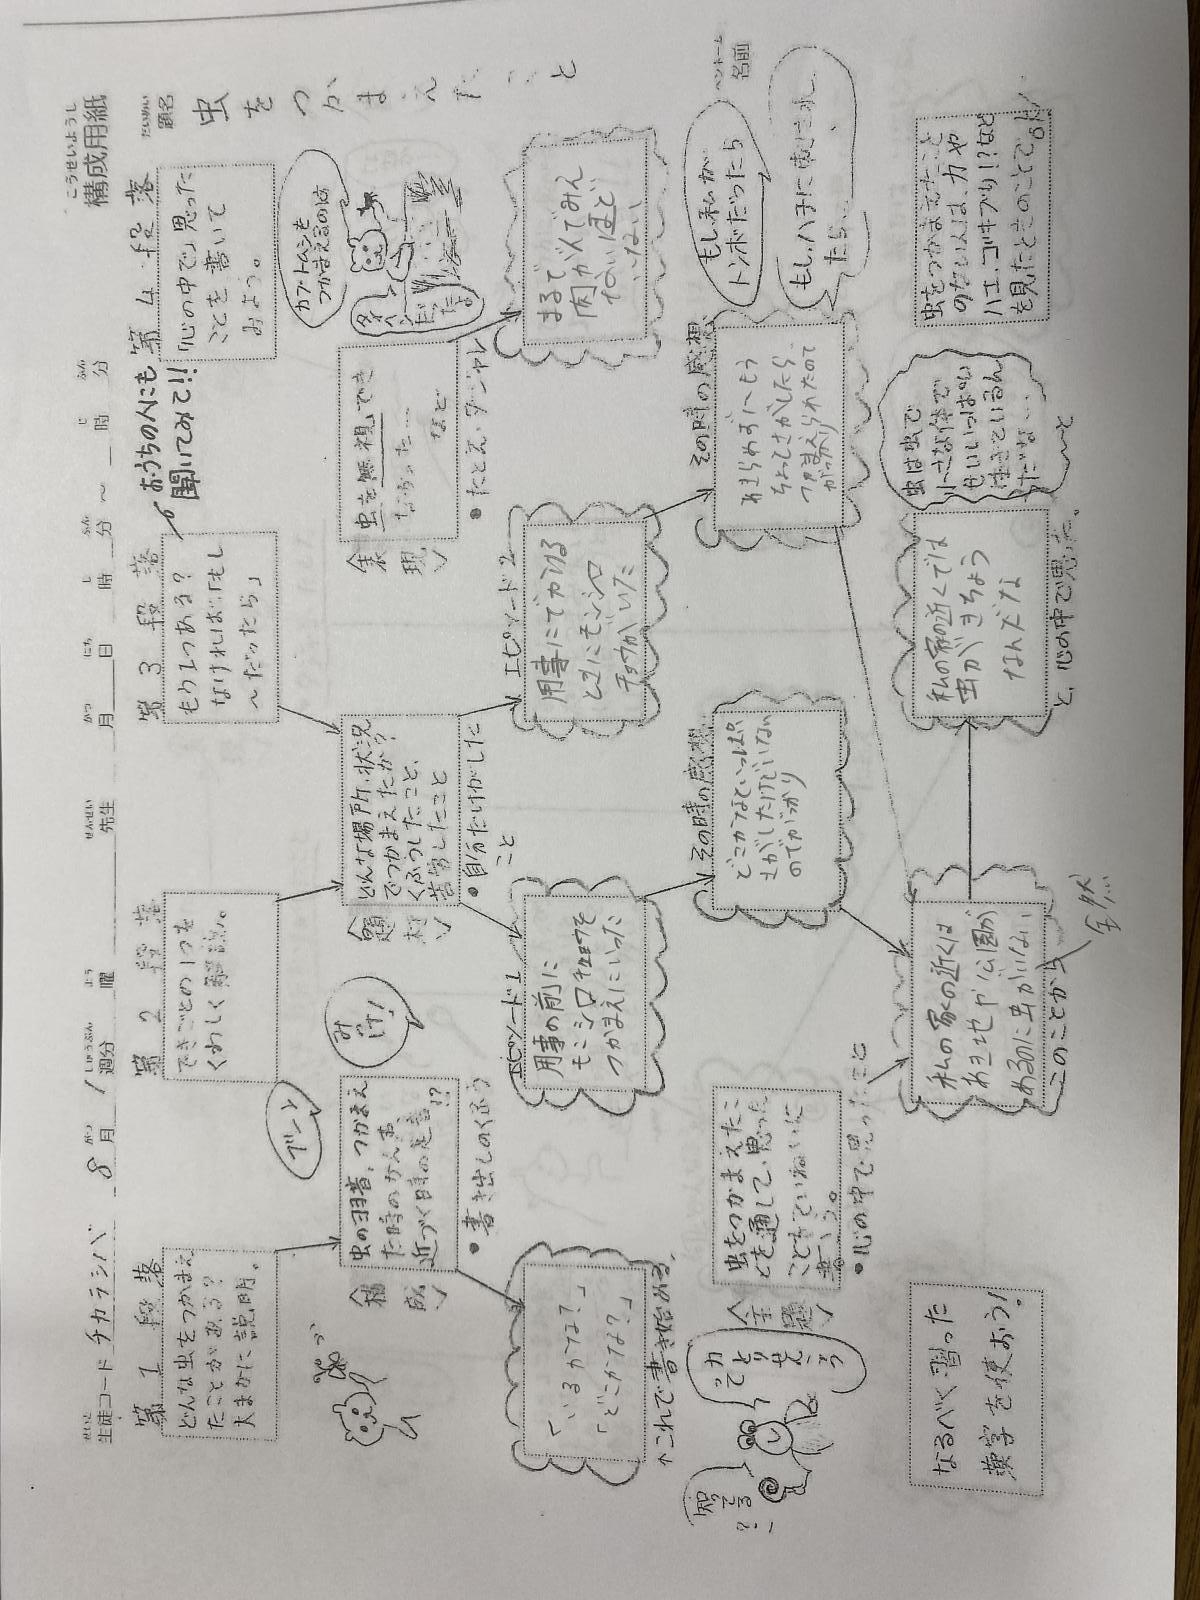 こうせいようし
構成用紙
せいと
生徒コード チカラシバ 8 がつ 月 1 しゅうぶん 週分 よう 曜 せんせい 先生 がつ 月 にち 日 じ 時 ふん 分 〜 じ 時 ふん 分
だいめい
題名
虫をつかまえたこと
ペンネーム
名前
第1段落
どんな虫をつかまえ
たことがある?
大まかに説明。
第2段落
できごとの1つを
くわしく解説。
第3段落
もう1つある?
なければ「もし
〜だったら」
おうちの人にも
聞いてみて!!
第4段落
「心の中で」思った
ことを書いて
みよう。
ブンッ
〈構成〉
虫の羽音、つかまえ
た時のかん声、
近づく時の足音!?
• 書き出しのくふう
みっけ!
〈題材〉
どんな場所、状況
でつかまえたか?
くふうしたこと、
苦労したこと
• 自分だけがした
こと
〈表現〉
虫を無視でき
なかった…
など
• たとえ・ダジャレ
カブトムシを
つかまえるのは
タイヘン
だったよ
「いるかな?」
「どこかな?」
↑これで書き始める。
エピソード1
用事の前に
モンシロチョウを
つかまえにいった
エピソード2
用事にでかける
ときにモンシロ
チョウがいた
まるで
肉がんでみえ
ないほど
いない
知ってる?
カ
とりせんこう
って
〈主題〉
虫をつかまえたこ
とを通して、思った
ことをていねいに
書こう。
• 心の中で思ったこと
その時の感想
どこかなといっぱい
さがしたけどいない
のでがっかり
その時の感想
あきらめずにもう
ちょっとさがしたら、
つかまえられたので
もし私が
トンボだったら
もし、ハチに
たら…
なるべく習った
漢字を使よう!
私の家の近くは
あき地や公園が
あるのに虫がいない
全然
このことから
私の家の近くでは
虫がきちょう
なんだな
と、心の中で思った。
虫は虫で
小さな体で
せいいっぱい
生きているん
だな…
〜と
虫をつかまえたこと
のない人は、カや
ハエ、ゴキブリ!?など
を見たときのことでOK